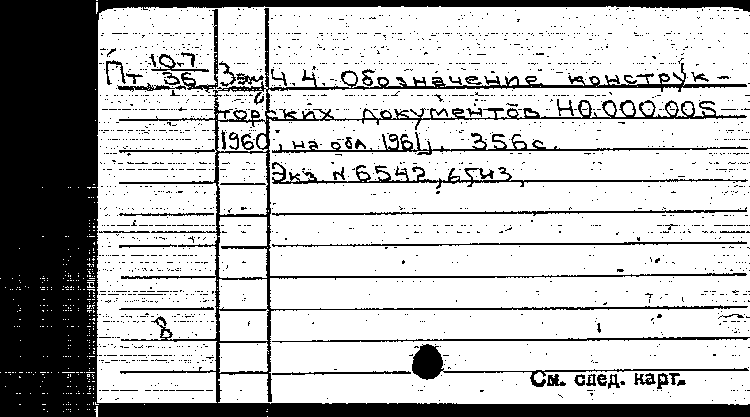 Пт 10.7/36 Зэм Ч. 4. Обозначение конструк-
торских документов Н0.000.005
1960, на обл. 1961, 356с.
Экз N 6542, 6543,
8
См. след. карт.